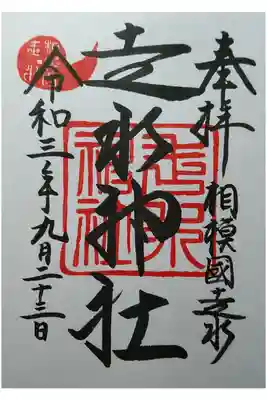 奉拝
相模國走水
走水神社
令和三年九月二十三日
走水神社